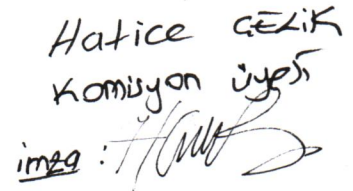 Hatice ÇELİK
Komisyon üyesi
imza :